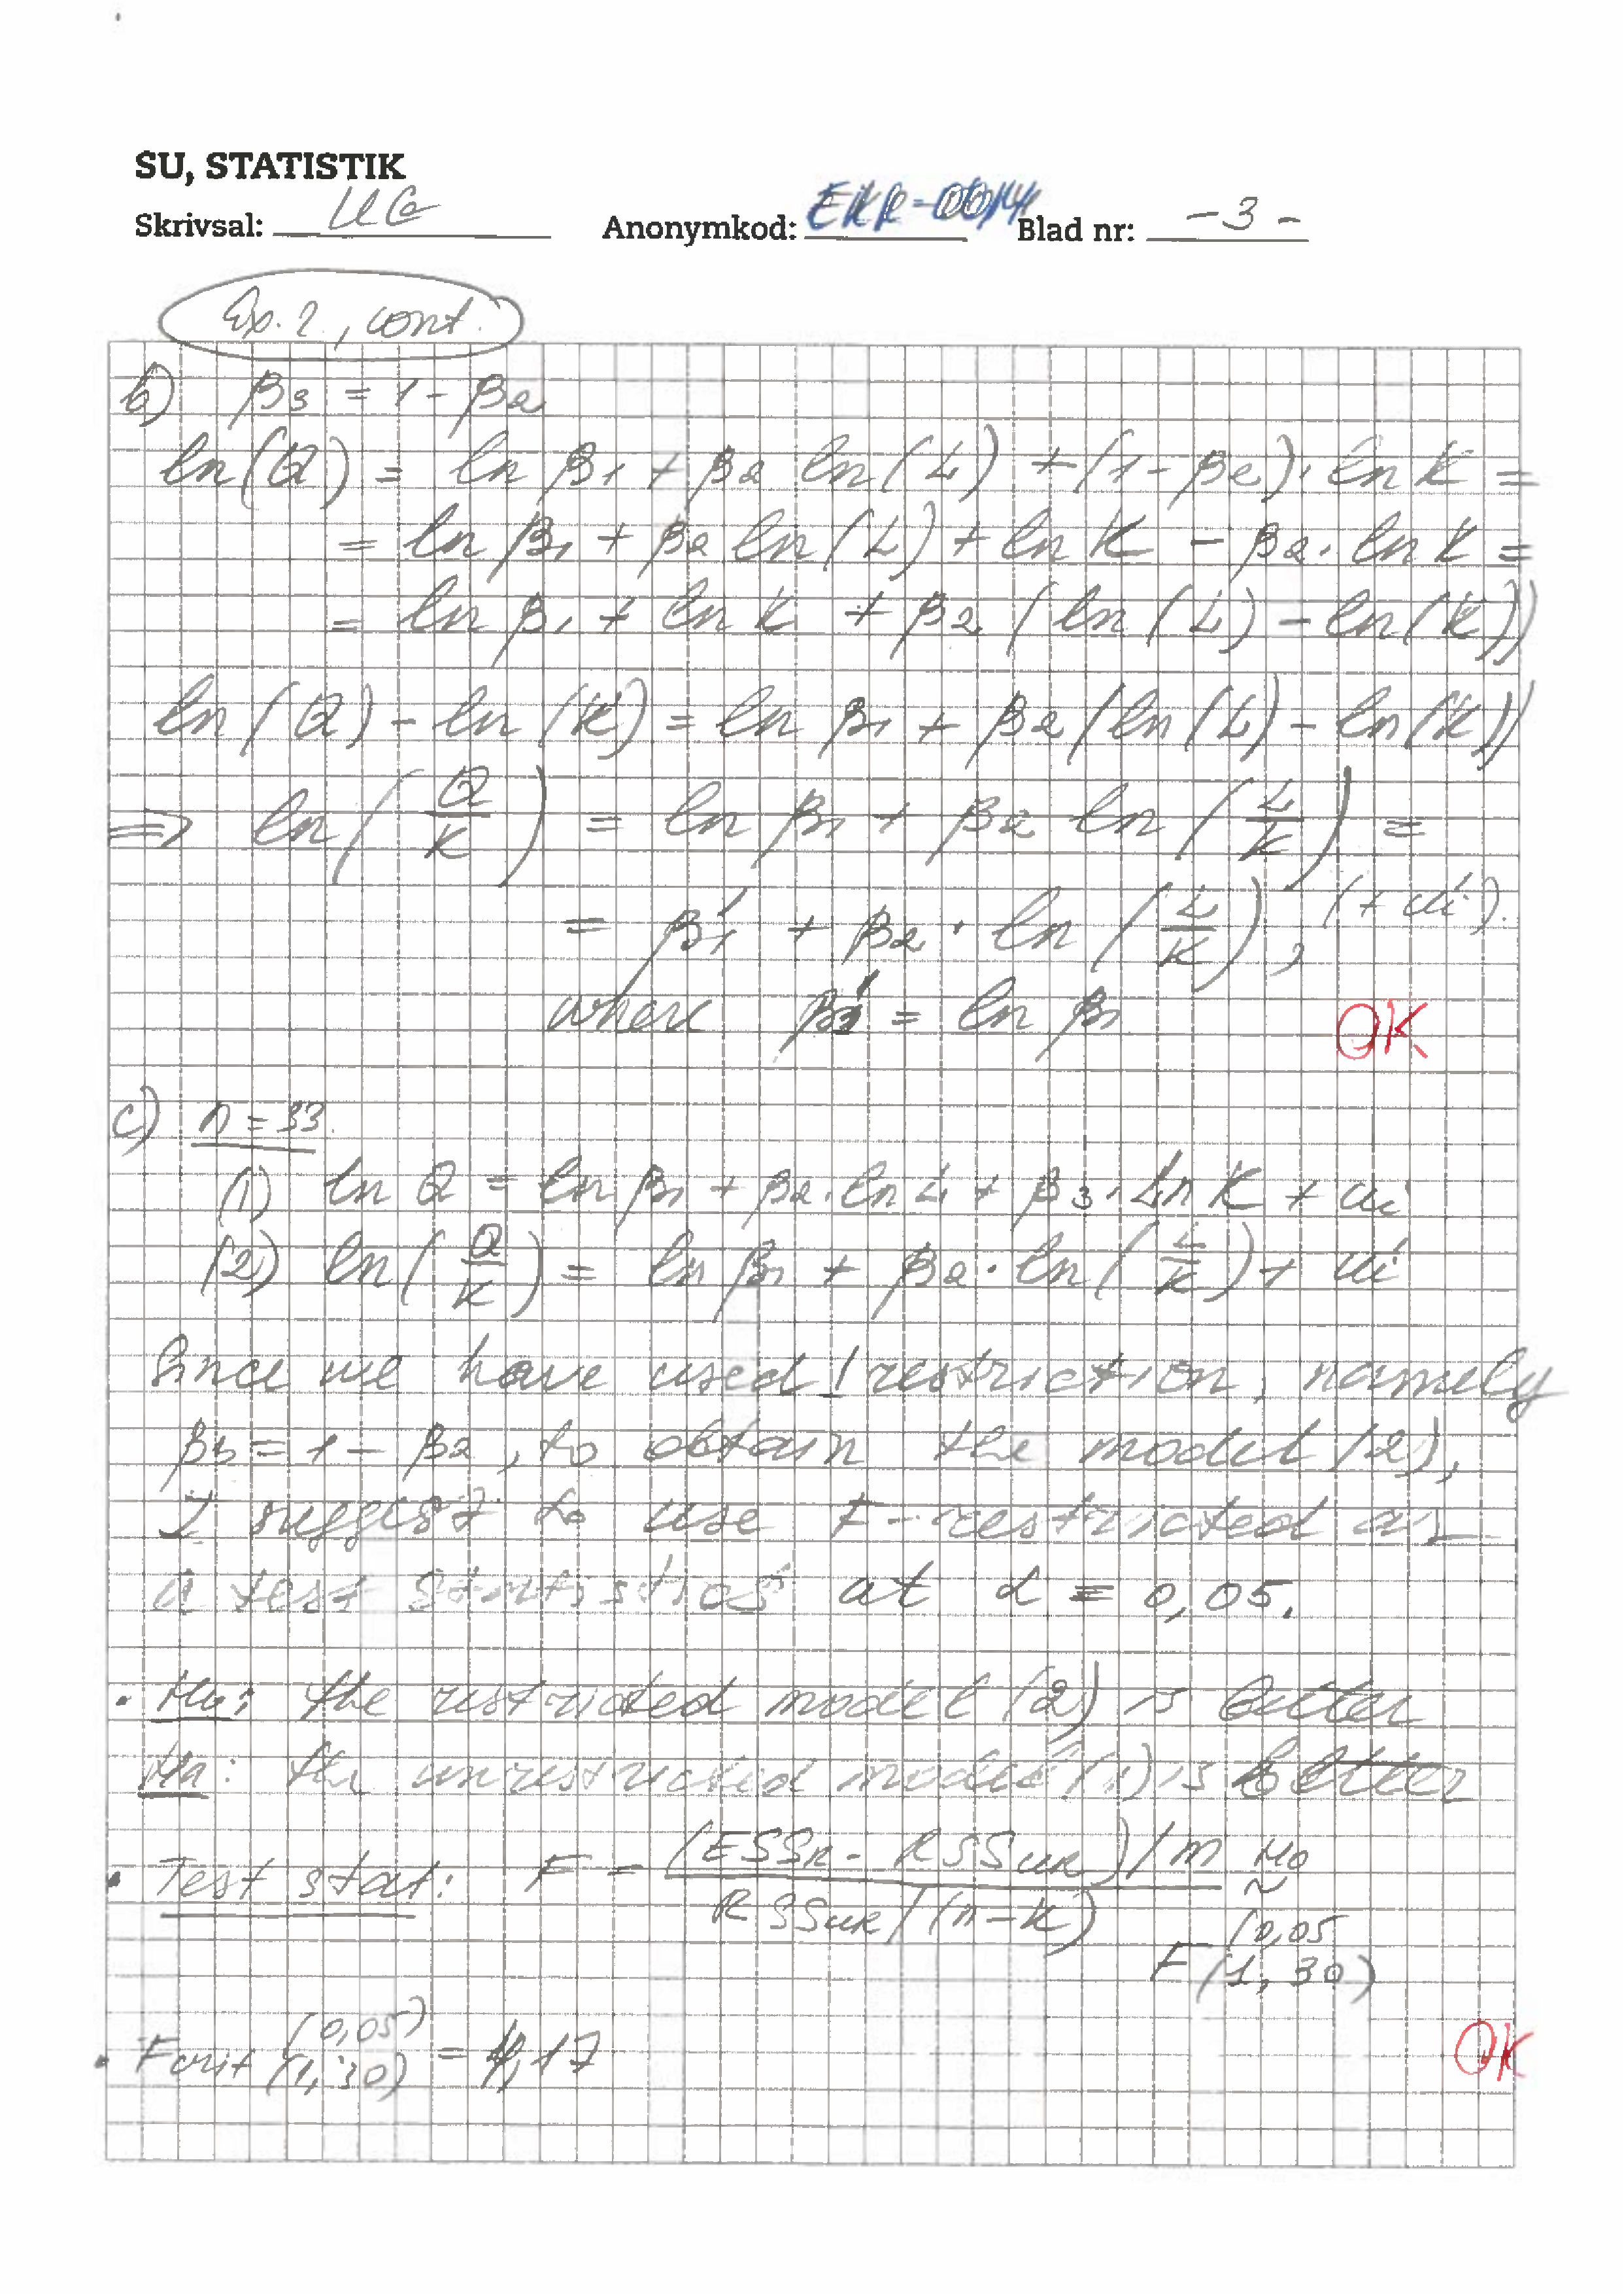 SU, STATISTIK
Skrivsal: Anonymkod: EKR-0014 Blad nr: -3-
Ex. 2, cont.
b) β3 = 1 - β2
ln(Q) = ln β1 + β2 ln(L) + (1 - β2) · ln K =
= ln β1 + β2 ln(L) + ln K - β2 · ln K =
= ln β1 + ln K + β2 (ln(L) - ln(K))
ln(Q) - ln(K) = ln β1 + β2 (ln(L) - ln(K))
⇒ ln(Q/K) = ln β1 + β2 ln(L/K) =
= β1' + β2 · ln(L/K), (+ ui).
where β1' = ln β1
OK
c) n = 33.
(1) ln Q = ln β1 + β2 · ln L + β3 · Ln K + ui
(2) ln(Q/K) = ln β1 + β2 · ln(L/K) + ui
Since we have used 1 restriction, namely
β3 = 1 - β2, to obtain the model (2),
I suggest to use F-restricted as
a test statistics at α = 0,05.
· H0: the restricted model (2) is better
Ha: the unrestricted model (1) is better
· Test stat: F = (ESSR - RSSUR)/m / RSSUR/(n-k) H0 ~ F(1, 30) (0,05
· Fcrit (1, 30) (0,05) = 4,17
OK